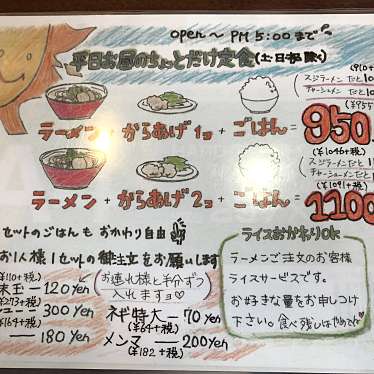 open～PM5:00まで
平日お昼のちょっとだけ定食(土日祝除く)
スジラーメンだと10
チャーシューメンだと10
ラーメン + からあげ1コ + ごはん = 950
(¥955
(¥1046+税)
スジラーメンだと1
チャーシューメンだと1
(¥1091+税)
ラーメン + からあげ2コ + ごはん = 1100
セットのごはんも おかわり自由
お1人様1セットの御注文をお願いします
(お連れ様と半分ずつ
入れますョ♡
¥110+税)
味玉－120yen
¥273+税)
300yen
¥164+税)
180yen
ネギ特大－70yen
(¥64+税)
メンマ－200yen
(¥182+税)
ライスおかわりOK
ラーメンご注文のお客様
ライスサービスです。
お好きな量をお申しつけ
下さい。食べ残しはやめてネ♡